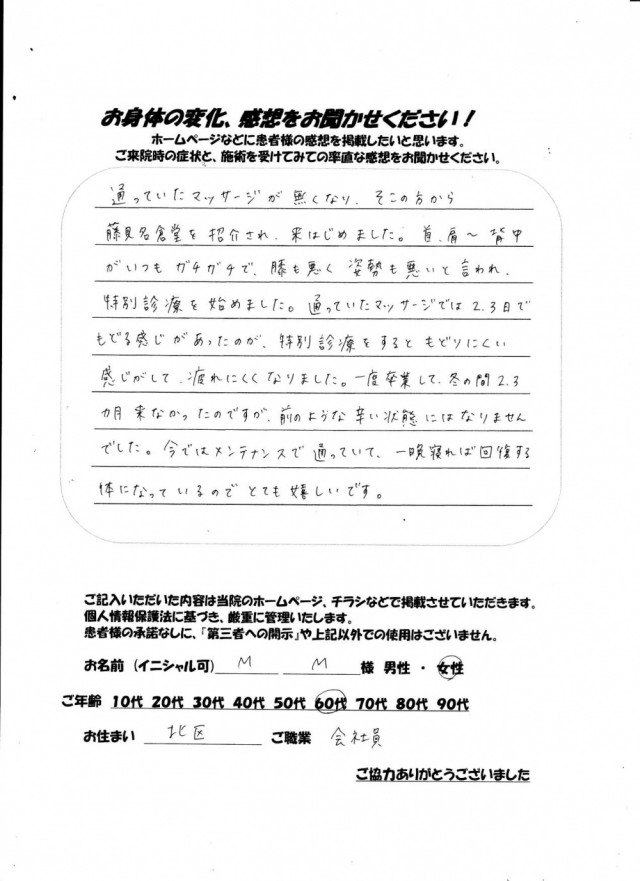 お身体の変化、感想をお聞かせください！
ホームページなどに患者様の感想を掲載したいと思います。
ご来院時の症状と、施術を受けてみての率直な感想をお聞かせください。
通っていたマッサージが無くなり、そこの方から
藤見名倉堂を紹介され、来はじめました。首、肩～背中
がいつもガチガチで、膝も悪く姿勢も悪いと言われ、
特別診療を始めました。通っていたマッサージでは2、3日で
もどる感じがあったのが、特別診療をするともどりにくい
感じがして、疲れにくくなりました。一度卒業して、冬の間2、3
カ月来なかったのですが、前のような辛い状態にはなりません
でした。今ではメンテナンスで通っていて、一晩寝れば回復する
体になっているのでとても嬉しいです。
ご記入いただいた内容は当院のホームページ、チラシなどで掲載させていただきます。
個人情報保護法に基づき、厳重に管理いたします。
患者様の承諾なしに、「第三者への開示」や上記以外での使用はございません。
お名前（イニシャル可） M M 様 男性 ・ 女性
ご年齢 10代 20代 30代 40代 50代 60代 70代 80代 90代
お住まい 北区 ご職業 会社員
ご協力ありがとうございました